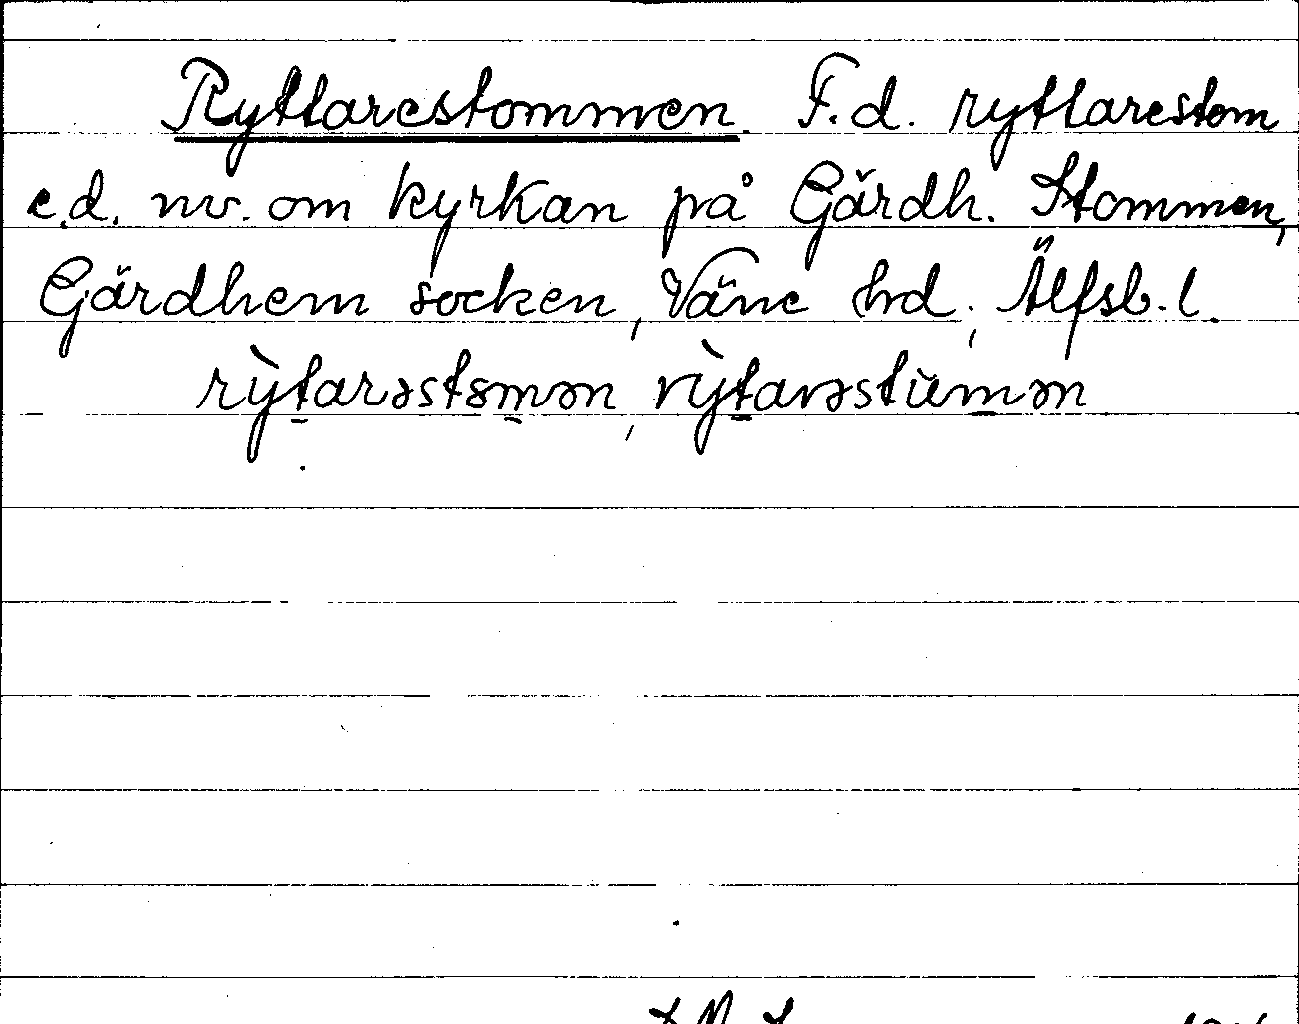 Ryttarestommen. F.d. ryttarestom
e.d. nv. om kyrkan på Gärdh. Stommen,
Gärdhem socken, Väne hd, Älfsb. l.
rỳtarəstɷmən, rỳtarəstùmən